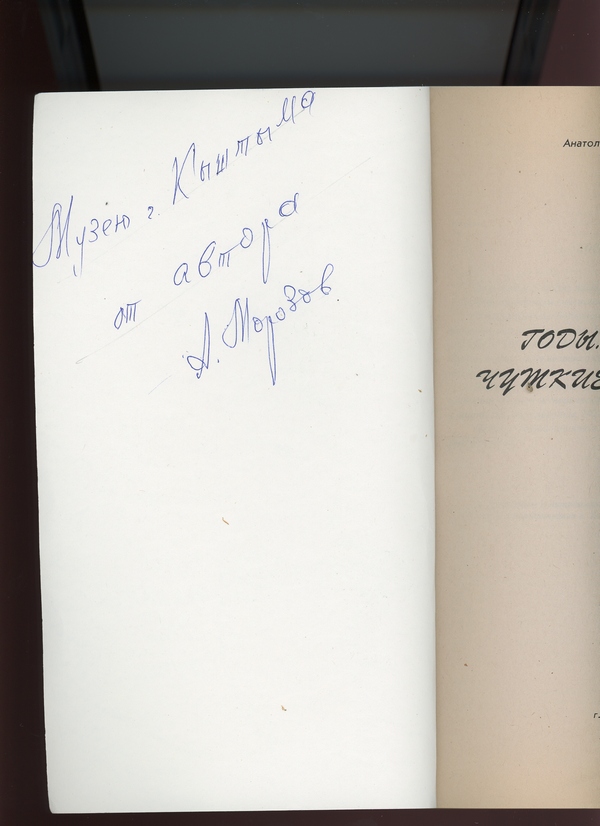 Музею г. Кыштыма
от автора
А. Морозов.
Анатол
ГОДЫ.
ЧУТКИЕ
г.